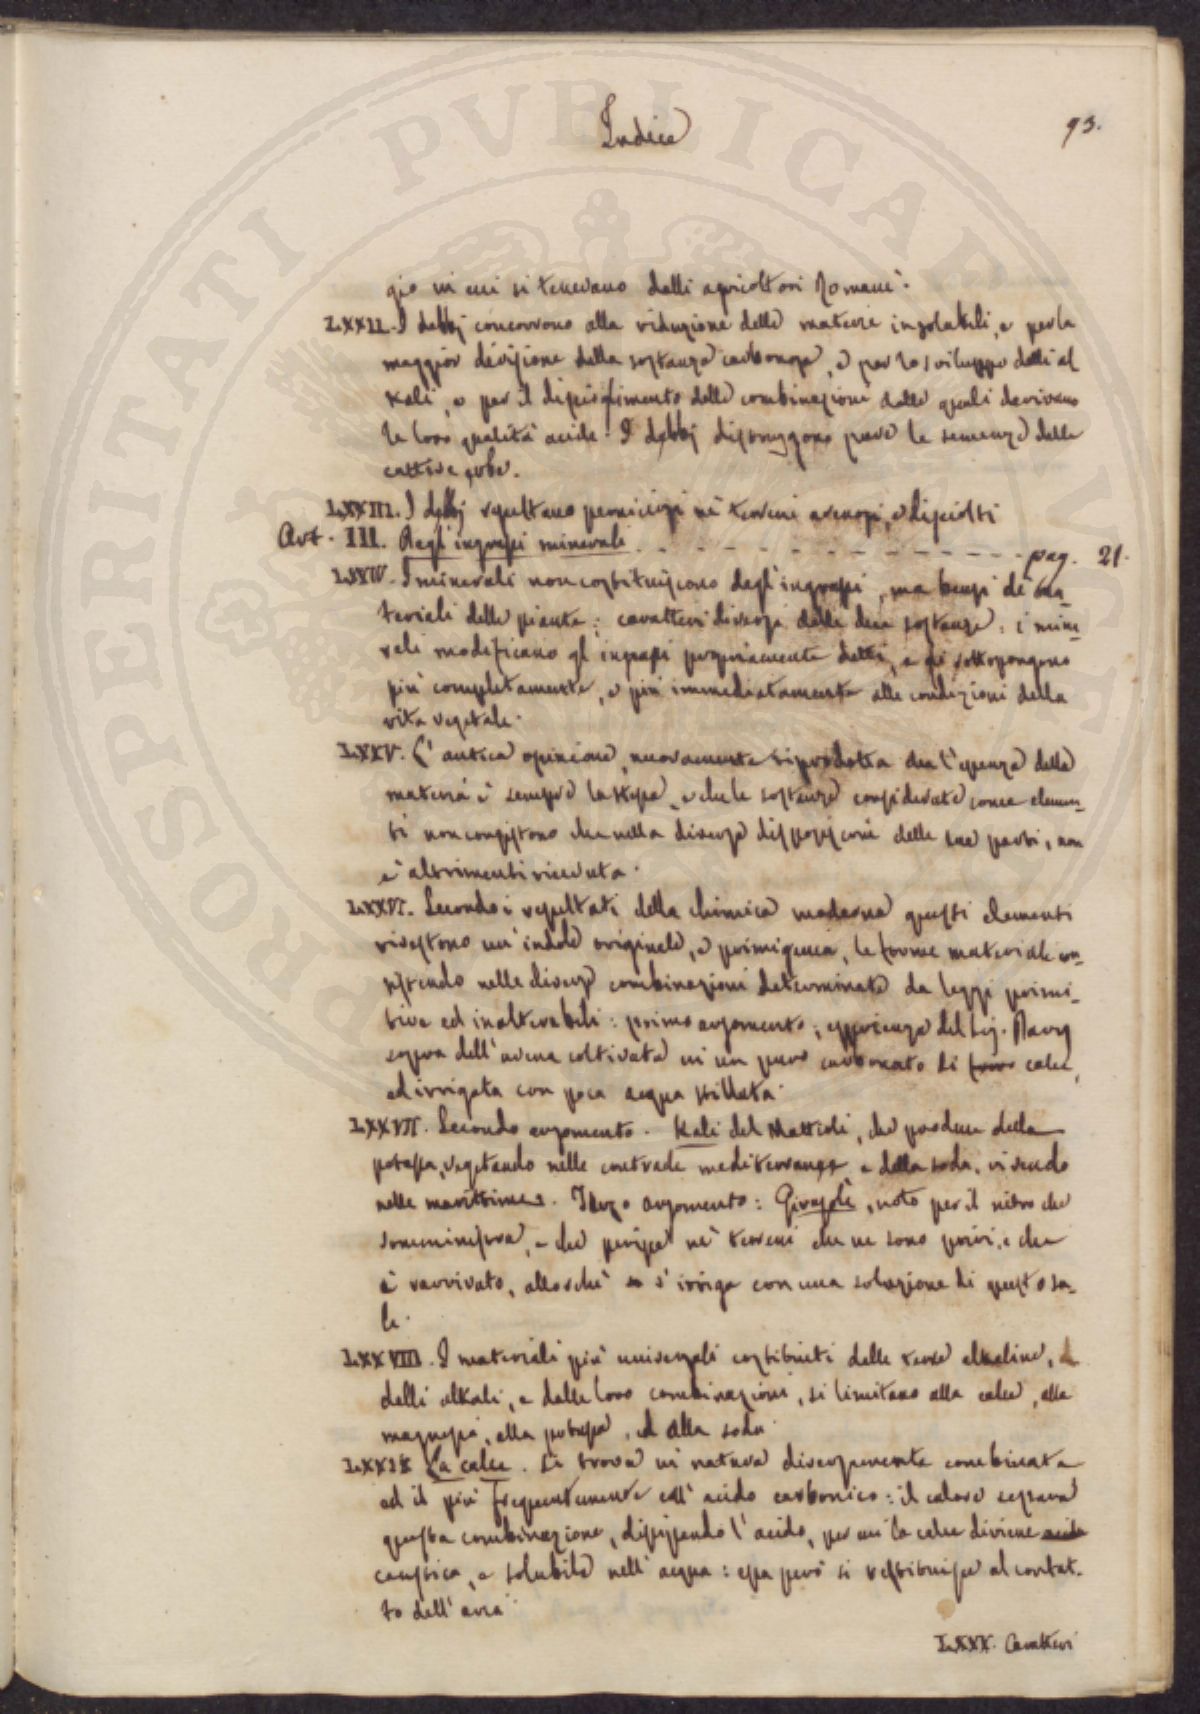 Indice
93.
gio in cui si tenevano dalli agricoltori Romani.
LXXII. I debbj concorrono alla riduzione delle materie insolubili, e per la
maggior divisione della sostanza carbonosa, e per lo sviluppo delli al
kali, e per il disperdimento delle combinazioni dalle quali derivano
le loro qualità acide. I debbj distruggono pure le semenze delle
cattive erbe.
LXXIII. I debbj resultano perniciosi nè terreni arenosi, e disciolti
Art. III. Degl' ingrassi minerali - - - - - - - - - - - - - pag. 21.
LXXIV. I minerali non costituiscono degl' ingrassi, ma bensi de' ma_
teriali delle piante: caratteri diversi delle due sostanze: i mine_
rali modificano gl' ingrassi propriamente detti, e gli sottopongono
più completamente, e più immediatamente alle condizioni della
vita vegetale.
LXXV. L' antica opinione, nuovamente riprodotta che l' essenza della
materia è sempre la stessa, e che le sostanze considerate come elemen_
ti non consistono che nella diversa disposizione delle sue parti, non
è altrimenti ricevuta.
LXXVI. Secondo i resultati della chimica moderna questi elementi
rivestono un' indole originale, e primigenea, le forme materiali con_
sistendo nelle diverse combinazioni determinate da leggi primi_
tive ed inalterabili: primo argomento; esperienza del Sig. Davy
sopra dell' avena coltivata in un puro carbonato di calce,
ed irrigata con poca acqua stillata.
LXXVII. Secondo argomento. Kali del Mattioli, che produce della
potassa, vegetando nelle contrade mediterranee, e della soda, vivendo
nelle marittime. Terzo argomento: Girasole, noto per il nitro che
somministra, e che perisce nè terreni che ne sono privi, e che
è ravvivato, allorchè s' irriga con una soluzione di questo sa_
le.
LXXVIII. I materiali più universali costituiti delle terre alkaline,
delli alkali, e dalle loro combinazioni, si limitano alla calce, alla
magnesia, alla potassa, ed alla soda.
LXXIX La calce. Si trova in natura diversamente combinata
ed il più frequentemente coll' acido carbonico: il calore separa
questa combinazione, dissipando l' acido, per cui la calce diviene acida
caustica, e solubile nell' acqua: essa però si restituisce al contat_
to dell' aria.
LXXX. Caratteri
PROSPERITATI PVBLICAE AVGENDAE